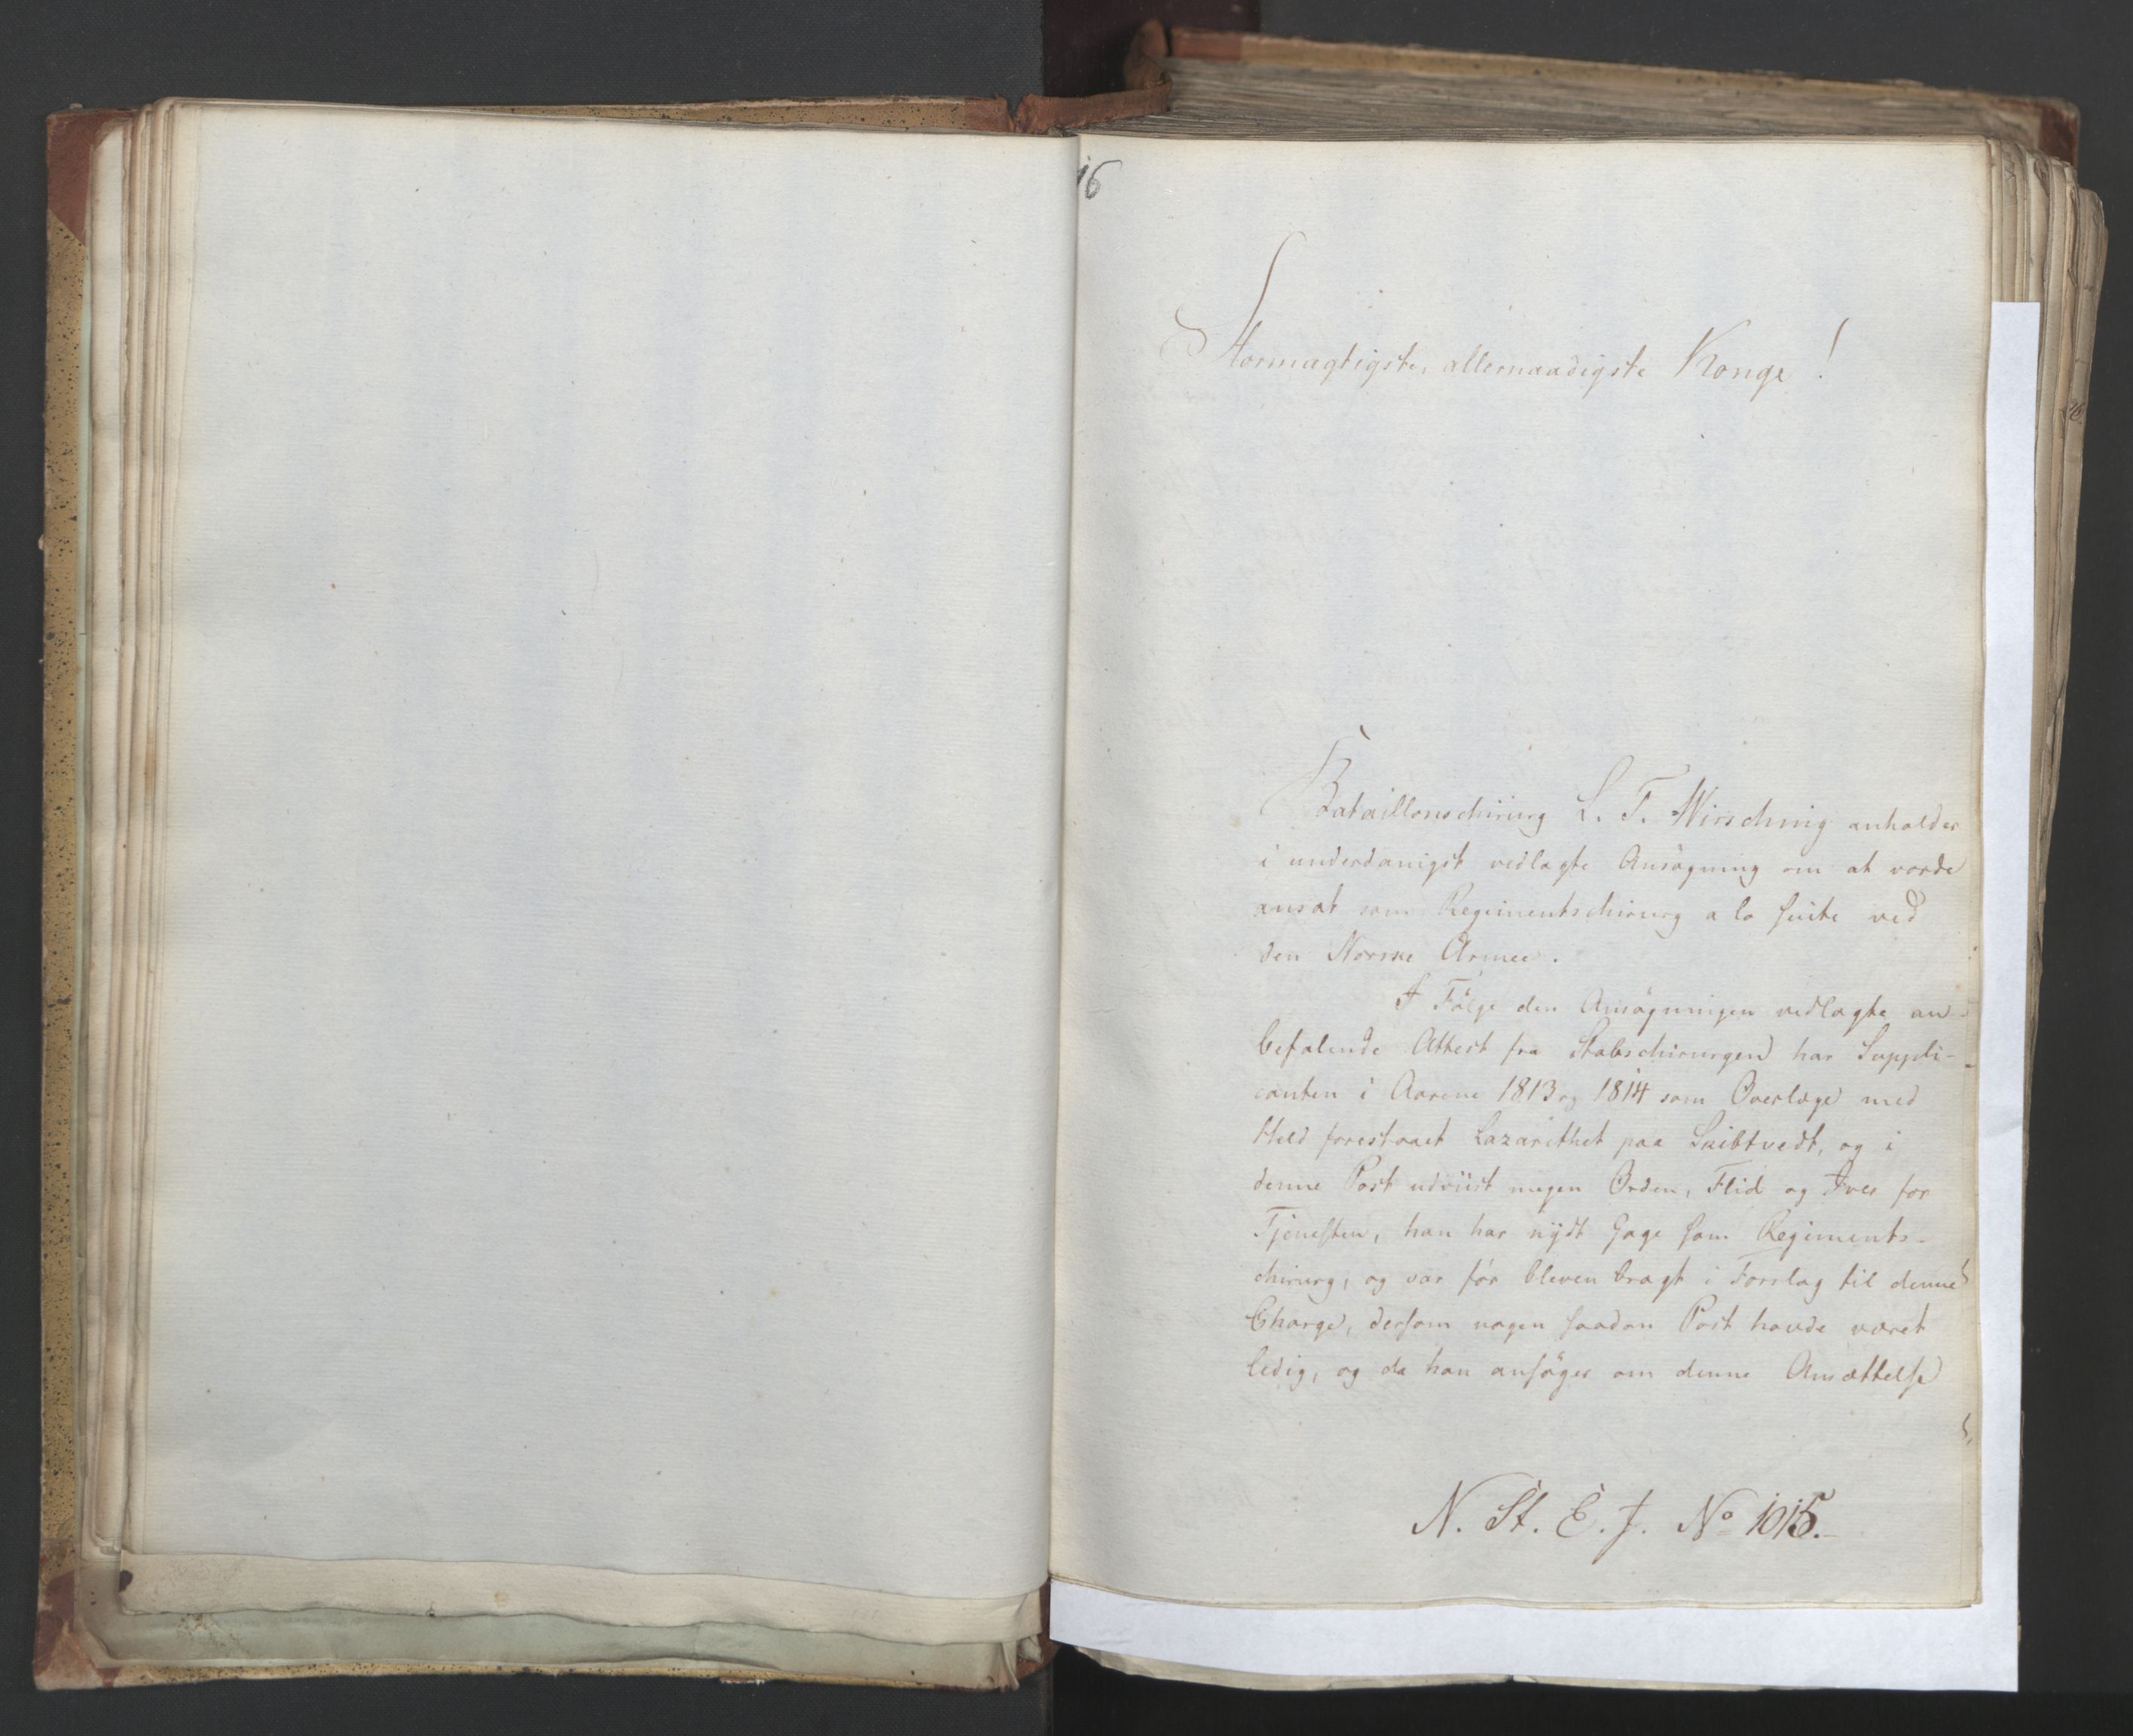 16
Stormægtigste, allernaadigste Konge!
Bataillonschirurg L. F. Wirsching anholder
i underdanigst vedlagte Ansøgning om at vorde
ansat som Regimentschirurg a la suite ved
den Norske Armee.
I Følge den Ansøgningen vedlagte an-
befalende Attest fra Stabschirurgen har Suppli-
canten i Aarene 1813 og 1814 som Overlæge med
Held forestaaet Lazarethet paa Skibtvedt, og i
denne Post udviist megen Orden, Flid og Iver for
Tjenesten, han har nydt Gage som Regiments-
chirurg, og var før bleven bragt i Forslag til denne
Charge, dersom nogen saadan Post havde været
ledig, og da han ansøger om denne Ansættelse
N. St. E. J. No 1015.